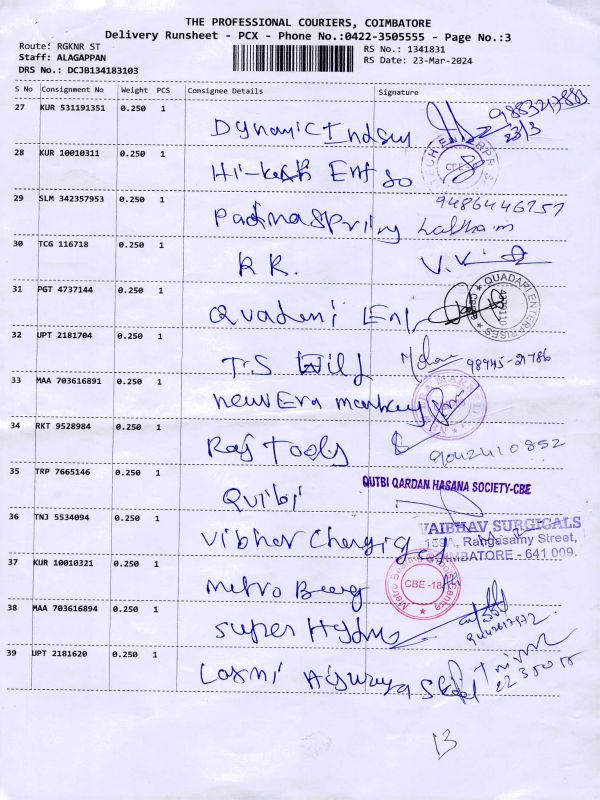 THE PROFESSIONAL COURIERS, COIMBATORE
Delivery Runsheet - PCX - Phone No.:0422-3505555 - Page No.:3
Route: RGKNR ST
RS No.: 1341831
Staff: ALAGAPPAN
RS Date: 23-Mar-2024
DRS No.: DCJB134183103
S No Consignment No Weight PCS Consignee Details Signature
27 KUR 531191351 0.250 1 Dynamic 23/3
28 KUR 10010311 0.250 1
29 SLM 342357953 0.250 1 Padma Spring 9486446757
30 TCG 116718 0.250 1 R R.
31 PGT 4737144 0.250 1 QUADARI ENTERPRISES
32 UPT 2181704 0.250 1 T.S 98945-21786
33 MAA 703616891 0.250 1 new Era
34 RKT 9528984 0.250 1 Raj Tools 9042410852
35 TRP 7665146 0.250 1 QUTBI QARDAN HASANA SOCIETY-CBE
36 TNJ 5534094 0.250 1 VAIBHAV SURGICALS
159A, Rangasamy Street,
COIMBATORE - 641 009.
37 KUR 10010321 0.250 1 metro CBE-18
38 MAA 703616894 0.250 1 super
39 UPT 2181620 0.250 1 Laxmi
13